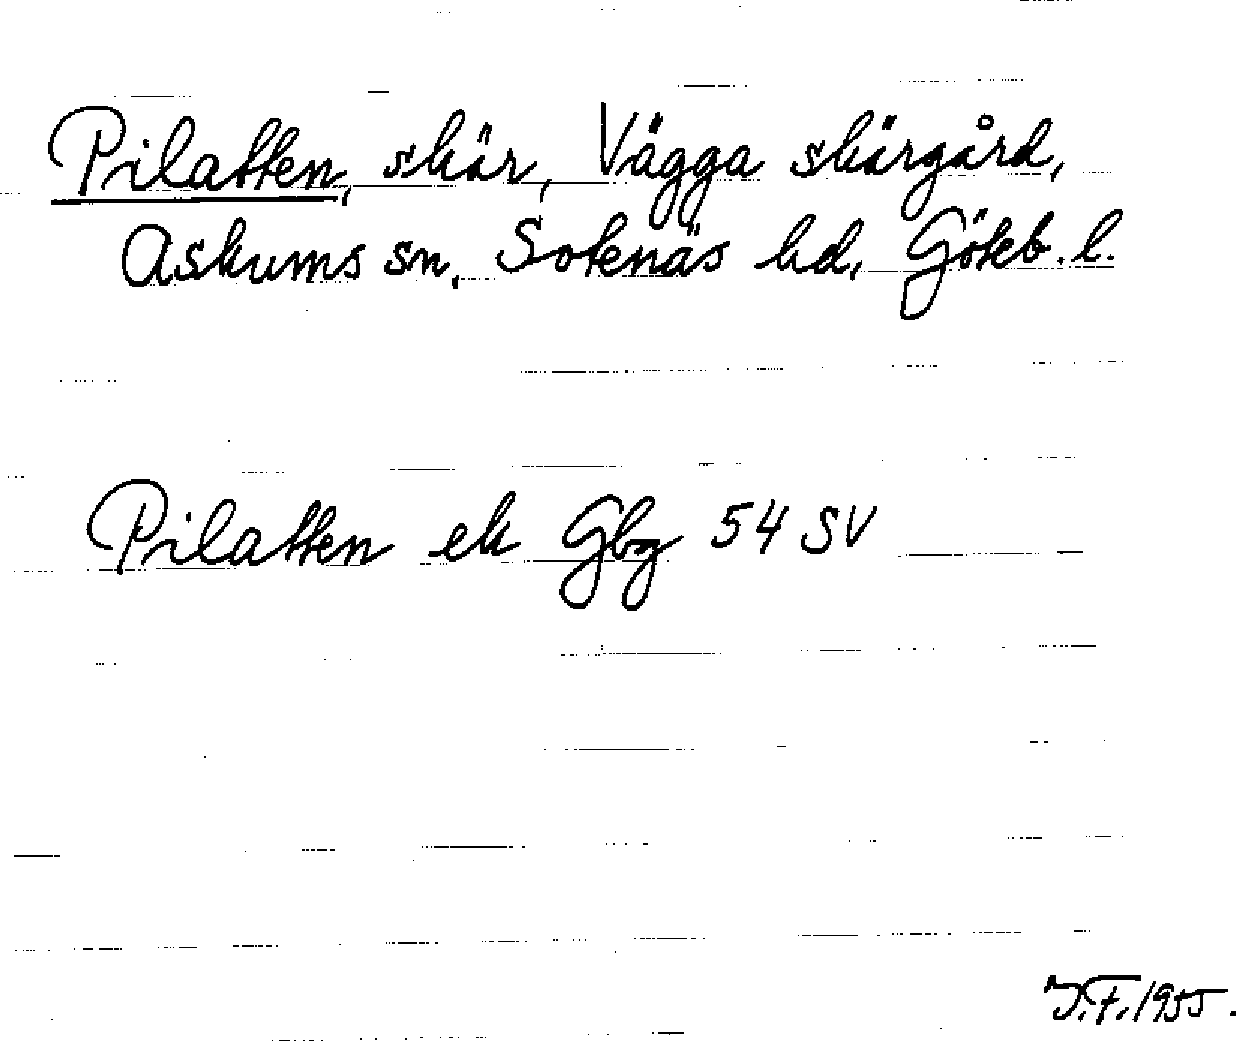 Pilatten, skär, Vägga skärgård,
Askums sn, Sotenäs hd, Göteb. l.
Pilatten ek Gbg 54 SV
I.F. 1955.